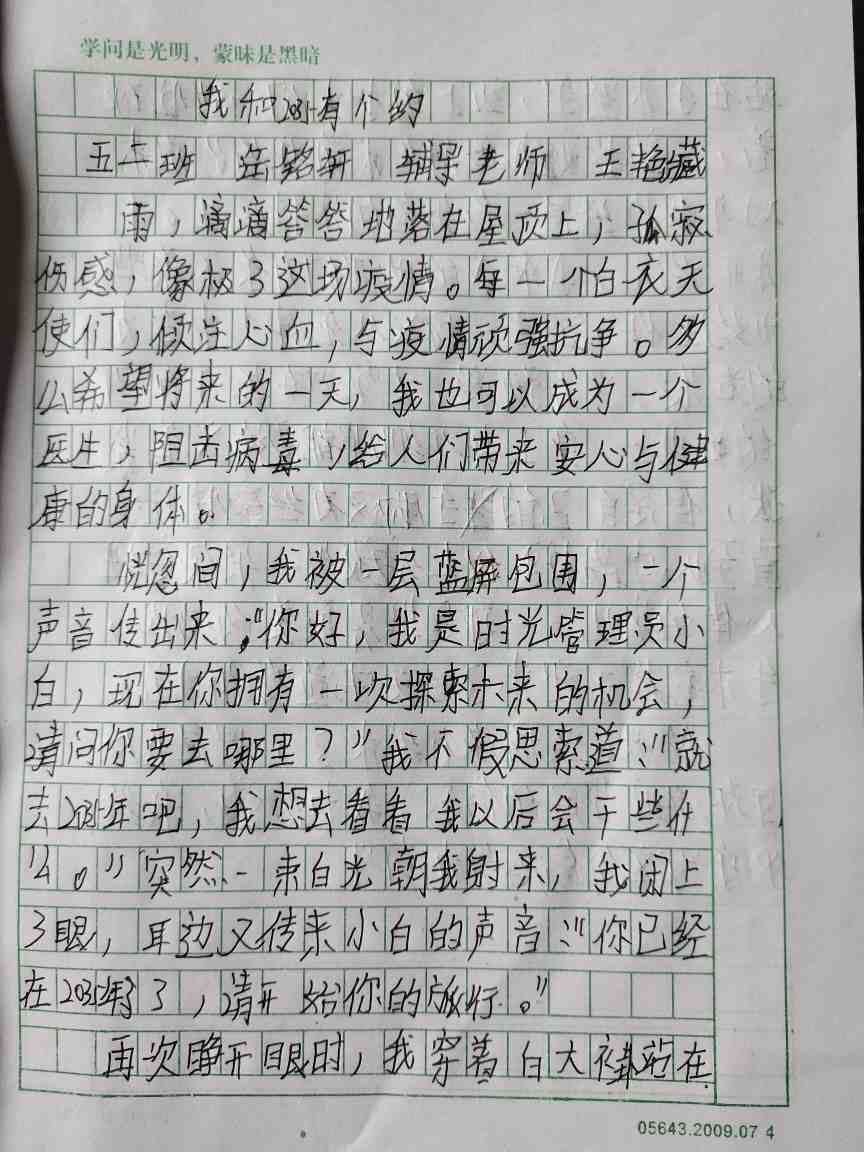 学问是光明，蒙昧是黑暗
我和2035有个约
五二班 岳铭轩 辅导老师 王艳藏
雨，滴滴答答地落在屋顶上，孤寂
伤感，像极了这场疫情。每一个白衣天
使们，倾注心血，与疫情顽强抗争。多
么希望将来的一天，我也可以成为一个
医生，阻击病毒，给人们带来安心与健
康的身体。
恍忽间，我被一层蓝屏包围，一个
声音传出来：“你好，我是时光管理员小
白，现在你拥有一次探索未来的机会，
请问你要去哪里？”我不假思索道：“就
去2035年吧，我想去看看我以后会干些什
么。”突然一束白光朝我射来，我闭上
了眼，耳边又传来小白的声音：“你已经
在2035年了，请开始你的旅行。”
再次睁开眼时，我穿着白大褂站在
05643.2009.07 4